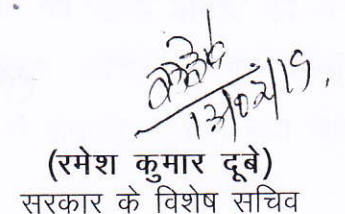 13/02/19.
(रमेश कुमार दूबे)
सरकार के विशेष सचिव